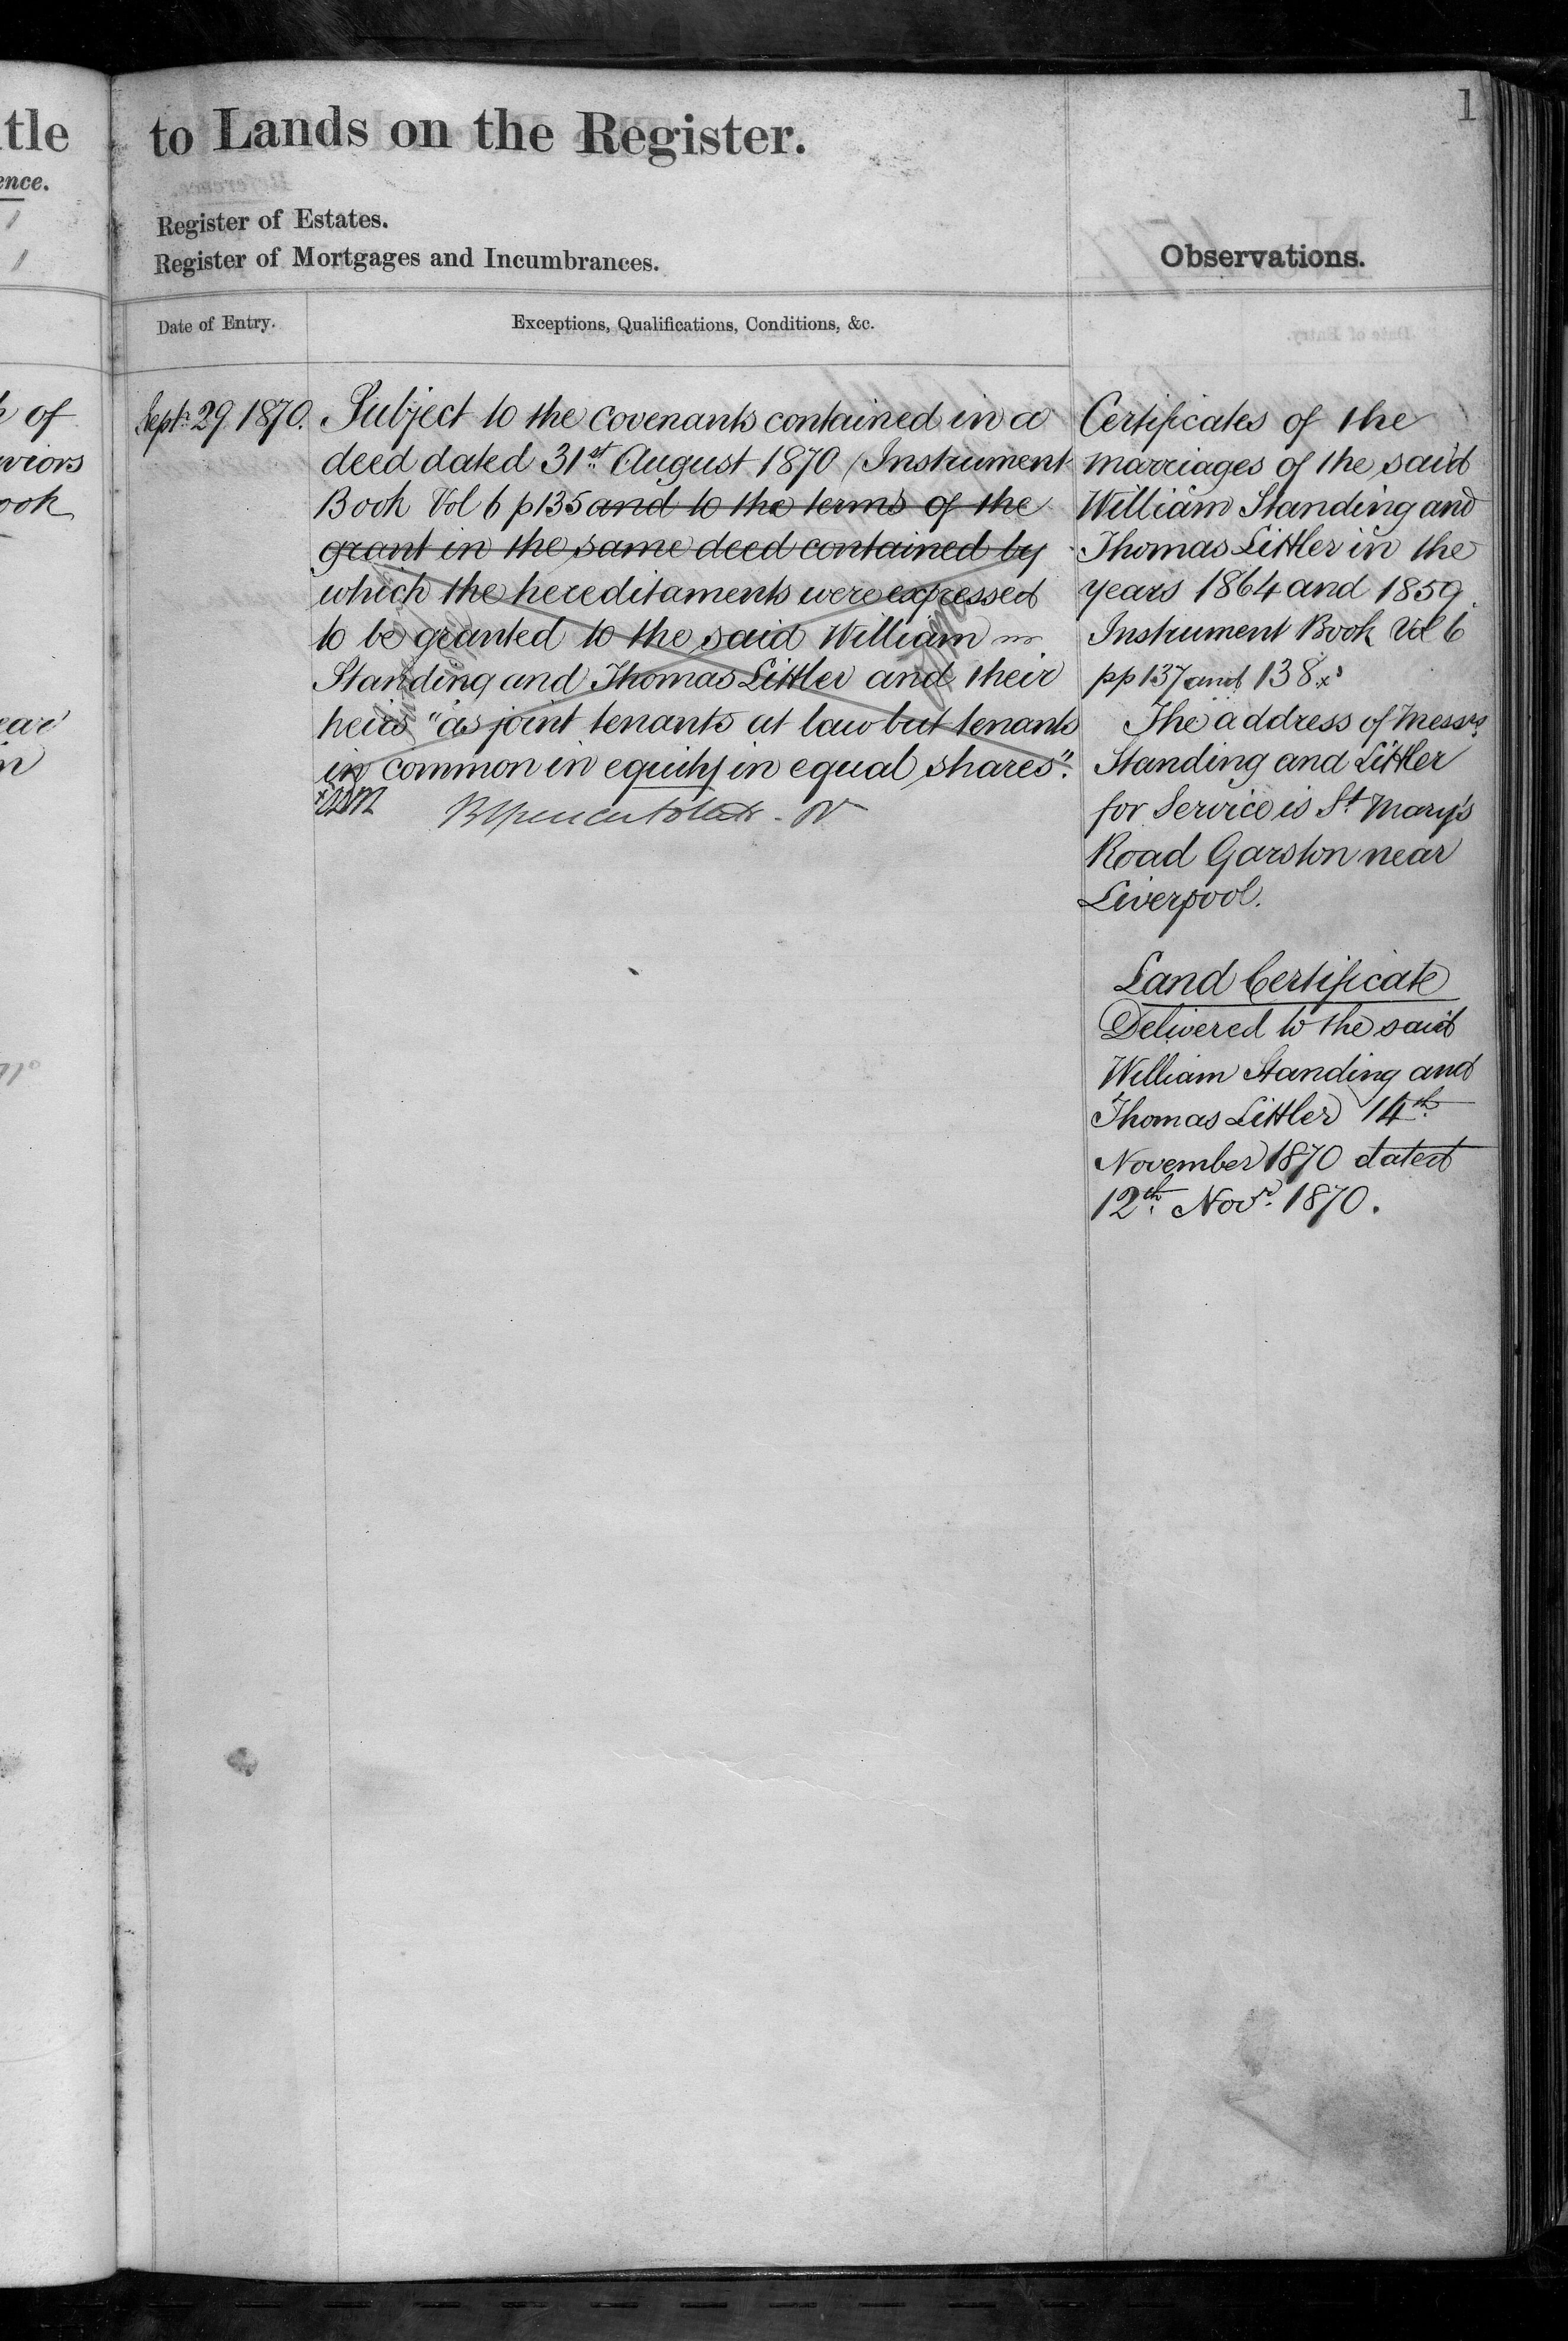 tle
ence.
1
1
of
wiors
ook
ear
1
to Lands on the Register.
Register of Estates.
Register of Mortgages and Incumbrances.
Observations.
Date of Entry.
Exceptions, Qualifications, Conditions, &c.
Septr. 29 1870.
Subject to the covenants contained in a
deed dated 31st August 1870 (Instrument
Book Vol 6 p135 and to the terms of the
grant in the same deed contained by
which the hereditaments were expressed
to be granted to the said William
Standing and Thomas Littler and their
heirs "as joint tenants at law but tenants
in common in equity in equal shares".
Certificates of the
marriages of the said
William Standing and
Thomas Littler in the
years 1864 and 1859.
Instrument Book Vol 6
pp 137 and 138
The address of Messrs.
Standing and Littler
for Service is St. Mary's
Road Garston near
Liverpool.
Land Certificate
Delivered to the said
William Standing and
Thomas Littler 14th
November 1870 dated
12th. Novr. 1870.